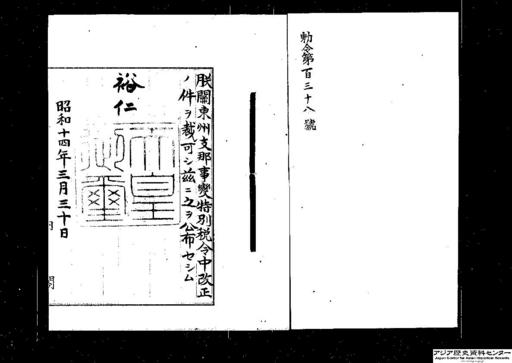 勅令第百三十八號
朕關東州支那事變特別税令中改正
ノ件ヲ裁可シ茲ニ之ヲ公布セシム
裕仁
天皇御璽
昭和十四年三月三十日
アジア歴史資料センター
Japan Center for Asian Historical Records